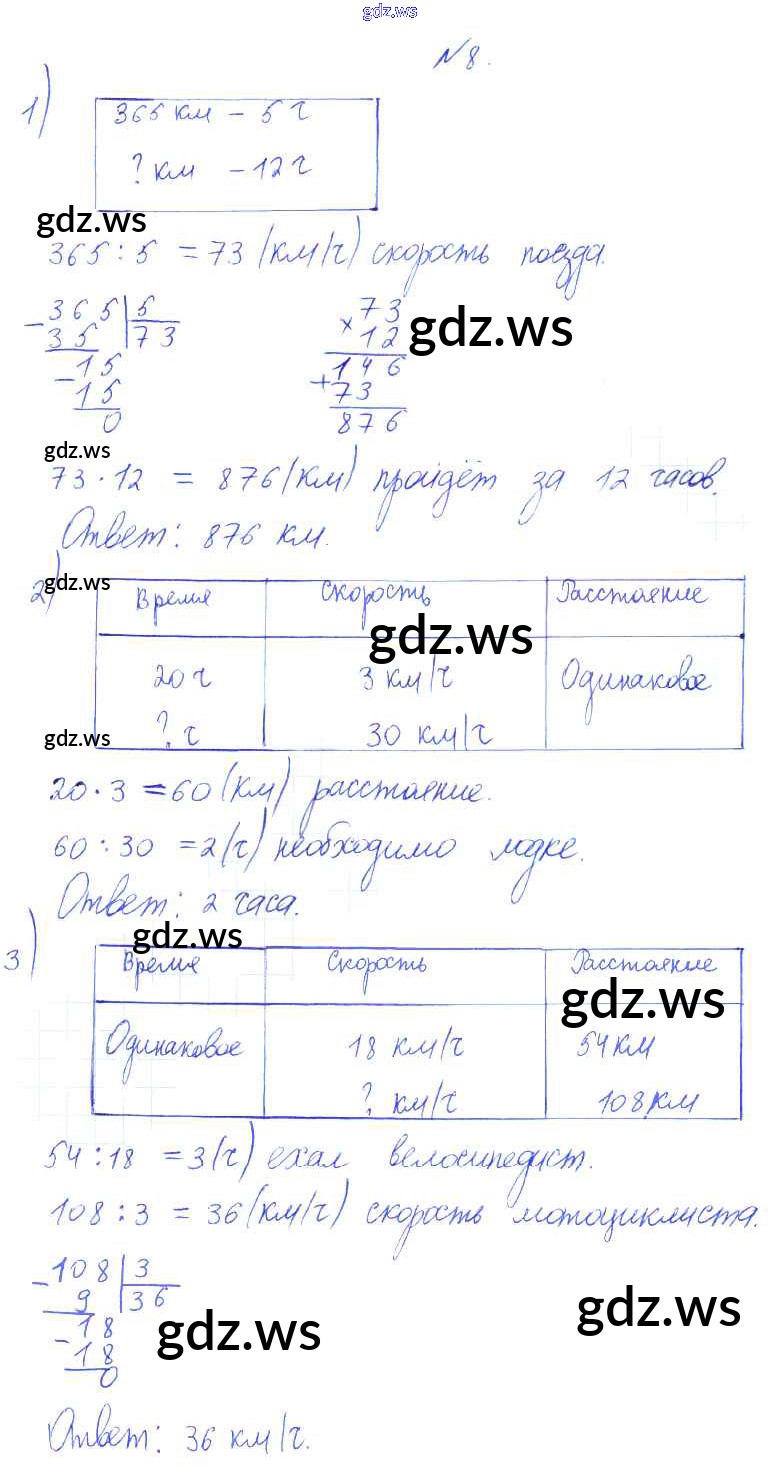 gdz.ws
№8.
1)
365 км – 5 ч
? км – 12 ч
gdz.ws
365 : 5 = 73 (км/ч) скорость поезда.
– 365 | 5 73
35 73 × 12 gdz.ws
– 15 146
15 + 73
0 876
gdz.ws
73 · 12 = 876 (км) пройдёт за 12 часов.
Ответ: 876 км.
2) gdz.ws
Время Скорость Расстояние
gdz.ws
20 ч 3 км/ч Одинаковое
? ч 30 км/ч
gdz.ws
20 · 3 = 60 (км) расстояние.
60 : 30 = 2 (ч) необходимо лодке.
Ответ: 2 часа.
gdz.ws
3)
Время Скорость Расстояние
gdz.ws
Одинаковое 18 км/ч 54 км
? км/ч 108 км
54 : 18 = 3 (ч) ехал велосипедист.
108 : 3 = 36 (км/ч) скорость мотоциклиста.
– 108 | 3
9 36
– 18 gdz.ws gdz.ws
18
0
Ответ: 36 км/ч.